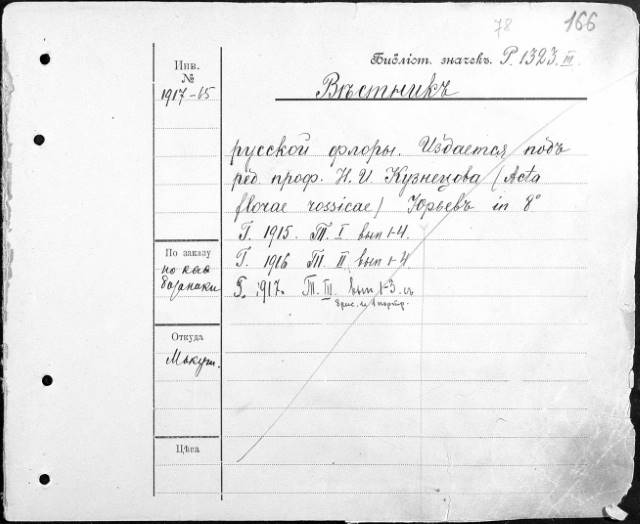 78 166
Инв.
№
1917-65
Библіот. значекъ. Р. 1323 III.
Вѣстникъ
русской флоры. Издается подъ
ред. проф. Н. И. Кузнецова (Acta
florae rossicae) Юрьевъ in 8°
Г. 1915. Т. I вып 1-4.
Г. 1916 Т. II вып 1-4.
Г. 1917. Т. III. вып 1-3. съ
рис. и портр.
По заказу
Откуда
Цѣна